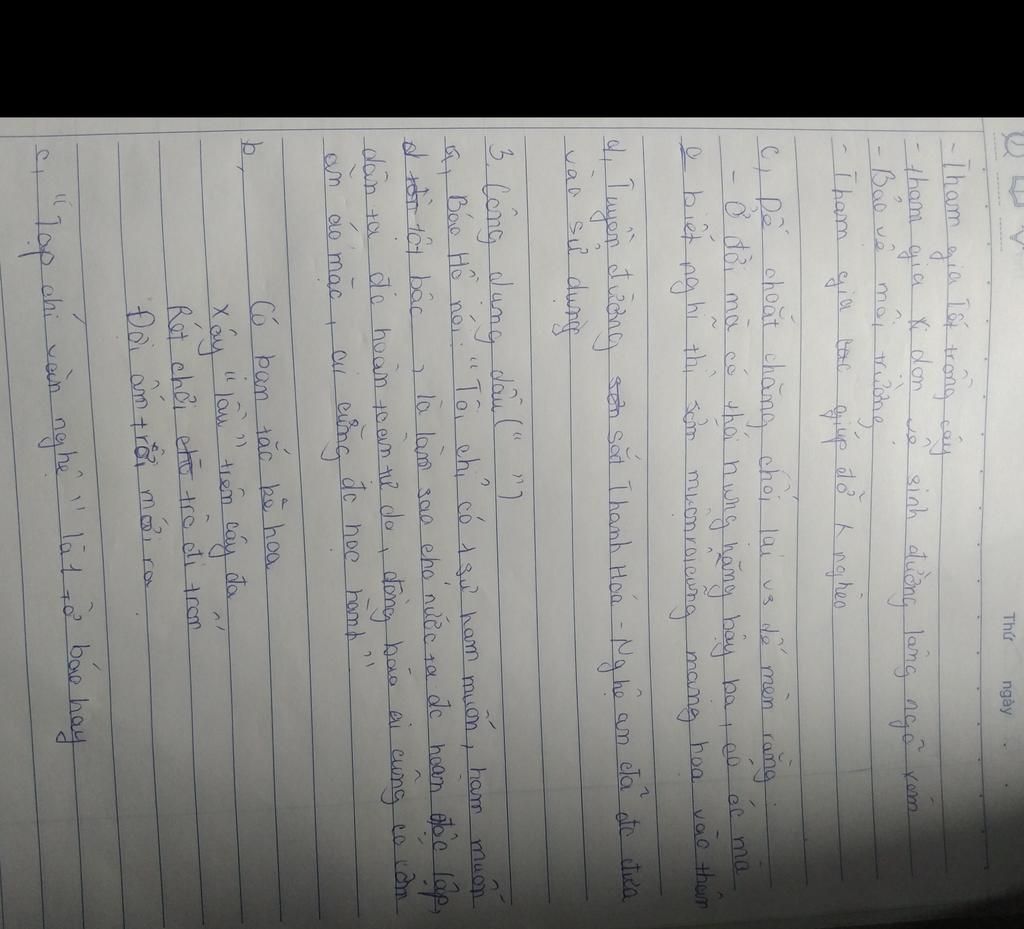 Thứ ngày
- Tham gia Tết trồng cây
- tham gia xi dọn vệ sinh đường làng ngõ xóm
- Bảo vệ môi trường
- Tham gia giúp đỡ k nghèo
c, Dế choắt chăng chối lại vs dế mèn rằng
- Ở đời mà có thói hung hăng bậy bạ, có óc mà
k biết nghĩ thì sớm muộn rồi cũng mang hoạ vào thân
d, Tuyến đường sắt Thanh Hóa - Nghệ an đã đc đưa
vào sử dụng
3. Công dụng dấu (" ")
a, Báo Hồ nói: "Tôi chỉ có 1 sự ham muốn, ham muốn
tột bậc, là làm sao cho nước ta đc hoàn độc lập,
dân ta đc hoàn toàn tự do, đồng bào ai cũng có cơm
ăn áo mặc, ai cũng đc học hành"
b, Có bạn tắc kè hoa
Xây "lầu" trên cây đa
Rét chơi trò đi trốn
Đợi ấm trời mới ra
c, "Tạp chí văn nghệ" là 1 tờ báo hay